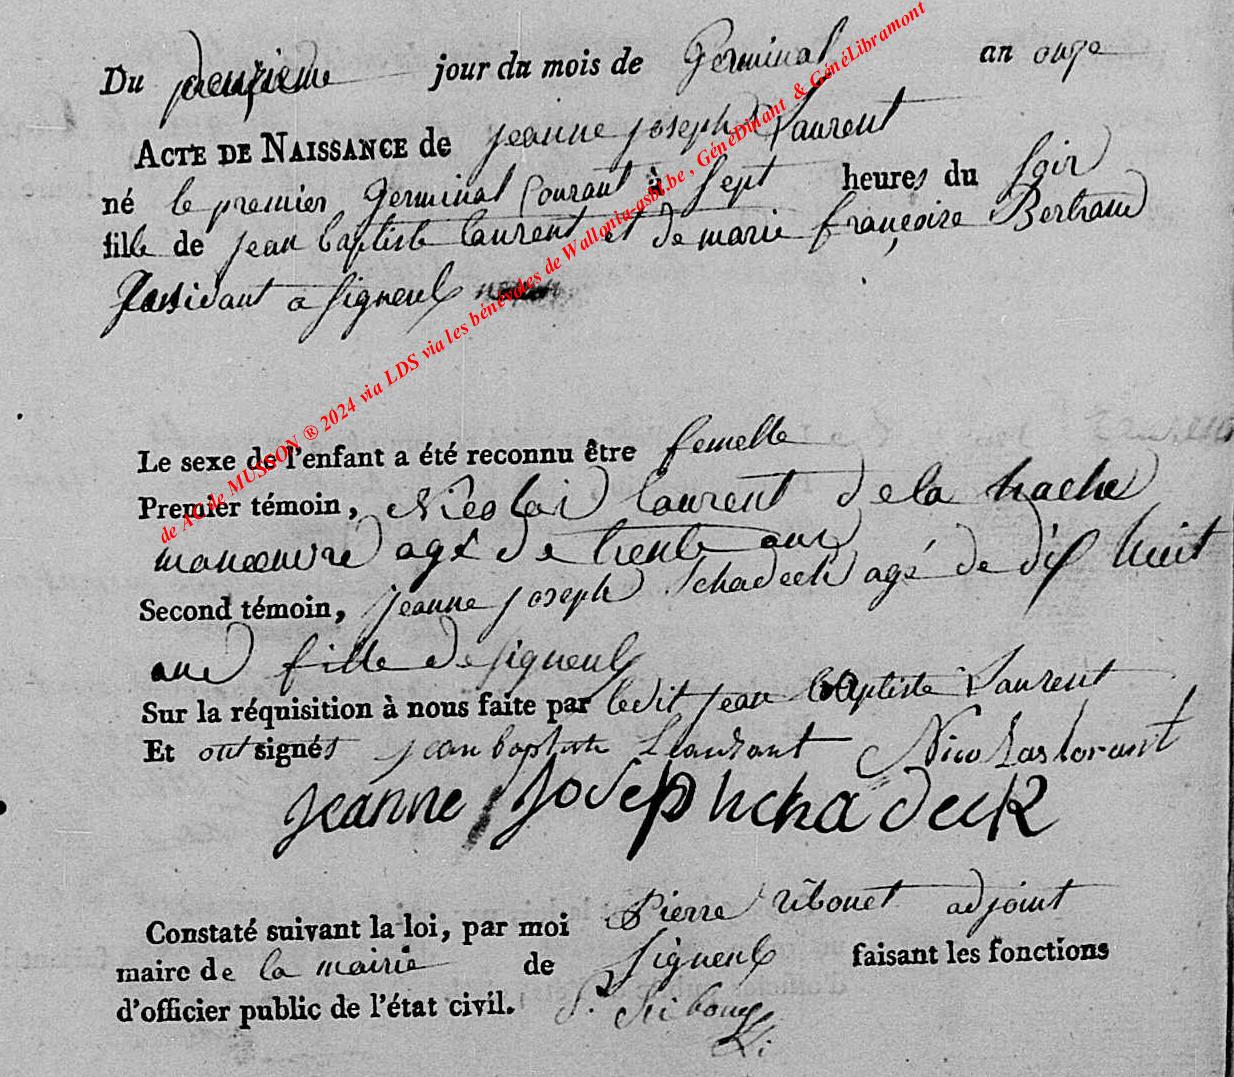 Du deuxieme jour du mois de Germinal an onze
ACTE DE NAISSANCE de jeanne joseph Laurent
né le premier Germinal Courant à Sept heures du Soir
fille de jean baptiste laurent et de marie françoise Bertrand
a Signeulx
Le sexe de l'enfant a été reconnu être femelle
Premier témoin, Nicolas laurent de la hache
manoeuvre agé de trente ans
Second témoin, jeanne joseph Schadeck agé de dix huit
ans fille de Signeulx
Sur la réquisition à nous faite par ledit jean baptiste Laurent
Et ont signés jean baptiste Nicolas lorant
jeanne joseph chadeck
Constaté suivant la loi, par moi Pierre ribouet adjoint
maire de la mairie de Signeulx faisant les fonctions
d'officier public de l'état civil. P.
de AC de MUSSON ® 2024 via LDS via les bénévoles de Wallonia-asbl.be , GénéDinant & GénéLibramont